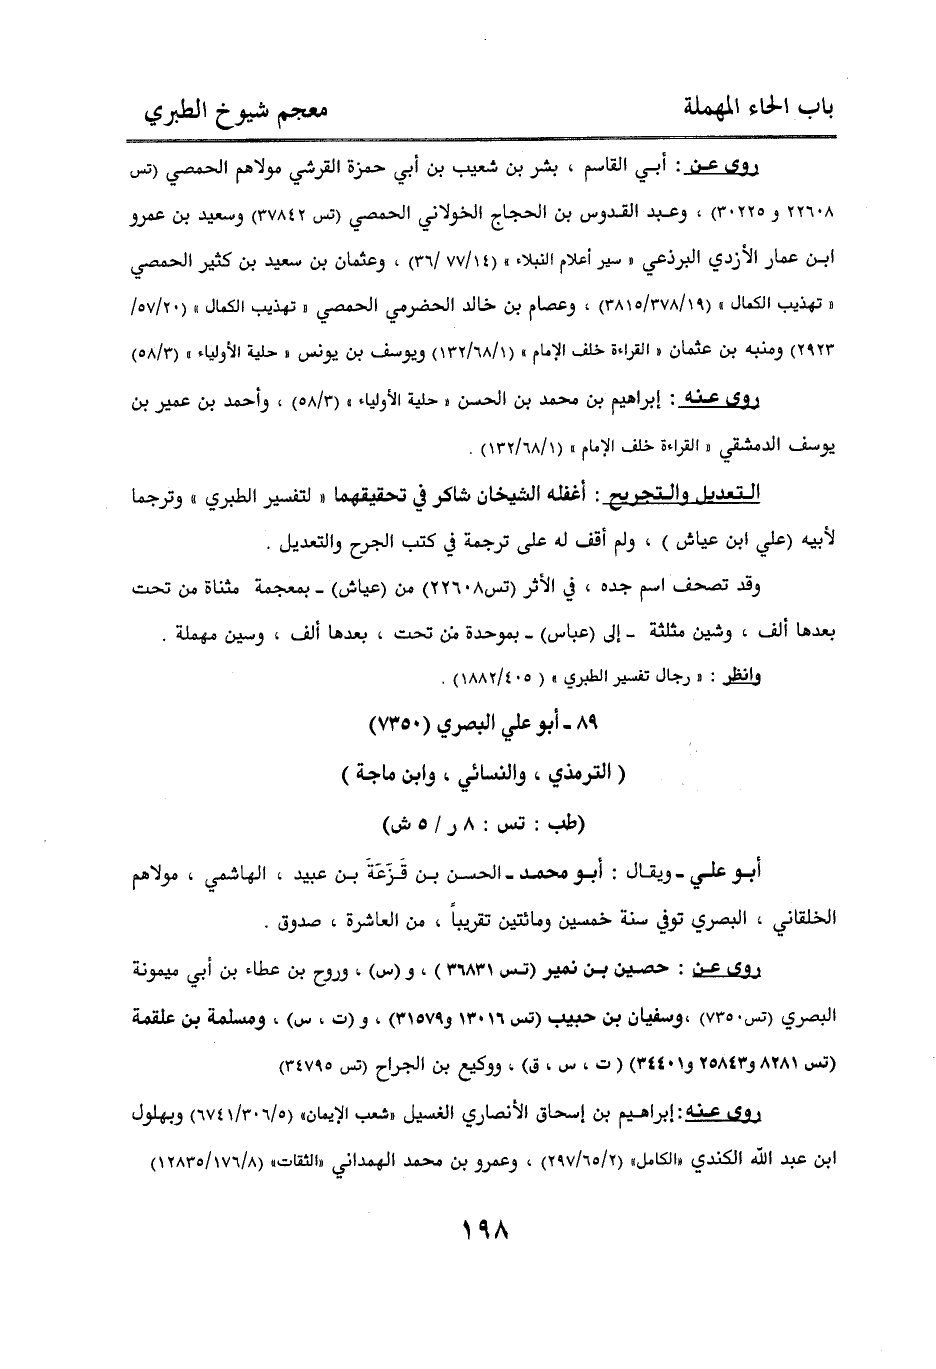 باب الحاء المهملة
معجم شيوخ الطبري
روى عن : أبي القاسم ، بشر بن شعيب بن أبي حمزة القرشي مولاهم الحمصي (تس
٢٢٦٠٨ و ٣٠٢٢٥) ، وعبد القدوس بن الحجاج الخولاني الحمصي (تس ٣٧٨٤٢) وسعيد بن عمرو
ابن عمار الأزدي البرذعي « سير أعلام النبلاء » (٧٧/١٤ /٣٦) ، وعثمان بن سعيد بن كثير الحمصي
« تهذيب الكمال » (٣٨١٥/٣٧٨/١٩) ، وعصام بن خالد الحضرمي الحمصي « تهذيب الكمال » (٥٧/٢٠/
٢٩٢٣) ومنبه بن عثمان « القراءة خلف الإمام » (١٣٢/٦٨/١) ويوسف بن يونس « حلية الأولياء » (٥٨/٣)
روى عنه : إبراهيم بن محمد بن الحسن « حلية الأولياء » (٥٨/٣) ، وأحمد بن عمير بن
يوسف الدمشقي « القراءة خلف الإمام » (١٣٢/٦٨/١) .
التعديل والتجريح : أغفله الشيخان شاكر في تحقيقهما « لتفسير الطبري » وترجما
لأبيه (علي ابن عياش ) ، ولم أقف له على ترجمة في كتب الجرح والتعديل .
وقد تصحف اسم جده ، في الأثر (تس٢٢٦٠٨) من (عياش) ـ بمعجمة مثناة من تحت
بعدها ألف ، وشين مثلثة ـ إلى (عباس) ـ بموحدة من تحت ، بعدها ألف ، وسين مهملة .
وانظر : « رجال تفسير الطبري » ( ١٨٨٢/٤٠٥) .
٨٩ ـ أبو علي البصري (٧٣٥٠)
( الترمذي ، والنسائي ، وابن ماجة )
(طب : تس : ٨ ر / ٥ ش)
أبو علي ـ ويقال : أبو محمد ـ الحسن بن قَزَعَةَ بن عبيد ، الهاشمي ، مولاهم
الخلقاني ، البصري توفي سنة خمسين ومائتين تقريباً ، من العاشرة ، صدوق .
روى عن : حصين بن نمير (تس ٣٦٨٣١ ) ، و (س) ، وروح بن عطاء بن أبي ميمونة
البصري (تس٧٣٥٠) ،وسفيان بن حبيب (تس ١٣٠١٦ و٣١٥٧٩) ، و (ت ، س) ، ومسلمة بن علقمة
(تس ٨٢٨١ و٢٥٨٤٣ و٣٤٤٠١) ( ت ، س ، ق) ، ووكيع بن الجراح (تس ٣٤٧٩٥)
روى عنه :إبراهيم بن إسحاق الأنصاري الغسيل «شعب الإيمان» (٦٧٤١/٣٠٦/٥) وبهلول
ابن عبد الله الكندي «الكامل» (٢٩٧/٦٥/٢) ، وعمرو بن محمد الهمداني «الثقات» (١٢٨٣٥/١٧٦/٨)
١٩٨